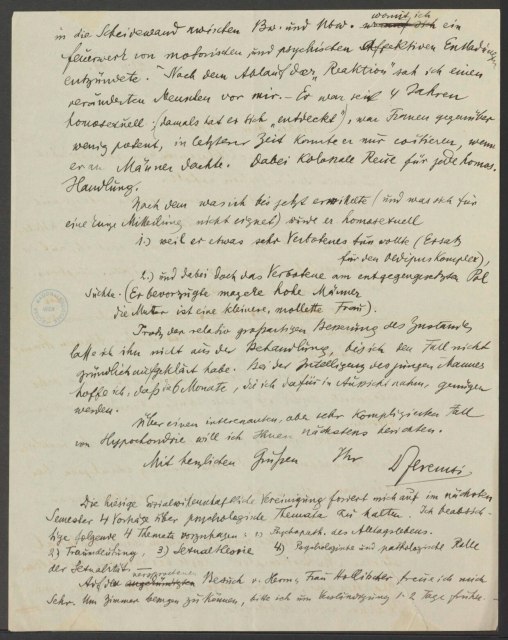 in die Scheidewand zwischen Bw. und Ubw. womit ich ein
Feuerwerk von motorischen und psychischen Affektiven Entladungen
entzündete. Nach dem Ablauf der „Reaktion" sah ich einen
veränderten Menschen vor mir. – Er war seit 4 Jahren
homosexuell (damals hat er sich „entdeckt"), war Frauen gegenüber
wenig potent, in letzterer Zeit konnte er nur coitieren, wenn
er an Männer dachte. Dabei kolossale Reue für jede homos.
Handlung.
Nach dem was ich bis jetzt ermittelte (und was sich für
eine kurze Mitteilung nicht eignet) wird er homosexuell
1.) weil er etwas sehr Verbotenes tun wollte (Ersatz
für den Oedipuskomplex),
2.) und dabei doch das Verbotene am entgegengesetzten Pol
suchte. (Er bevorzugte magere hohe Männer
die Mutter ist eine kleinere, mollette Frau).
Trotz der relativ grossartigen Besserung des Zustandes
lasse ich ihn nicht aus der Behandlung, bis ich den Fall nicht
gründlich aufgeklärt habe. Bei der Intelligenz des jungen Mannes
hoffe ich, daß 6 Monate, die ich dafür in Aussicht nahm, genügen
werden.
Über einen interessanten, aber sehr komplizierten Fall
von Hypochondrie will ich Ihnen nächstens berichten.
Mit herzlichen Grüßen Ihr DFerenczi
Die hiesige Sozialwissenschaftliche Vereinigung fordert mich auf im nächsten
Semester 4 Vorträge über psychologische Themata zu halten. Ich beabsich-
tige folgende 4 Themata vorzutragen: 1) Psychopath. des Alltagslebens.
2) Traumdeutung, 3) Sexualtheorie 4) Psychologische und pathologische Rolle
der Sexualität.
Auf den versprochenen Besuch v. Herrn u. Frau Hollitscher freue ich mich
sehr. Um Zimmer besorgen zu können, bitte ich um Verständigung 1–2 Tage früher.